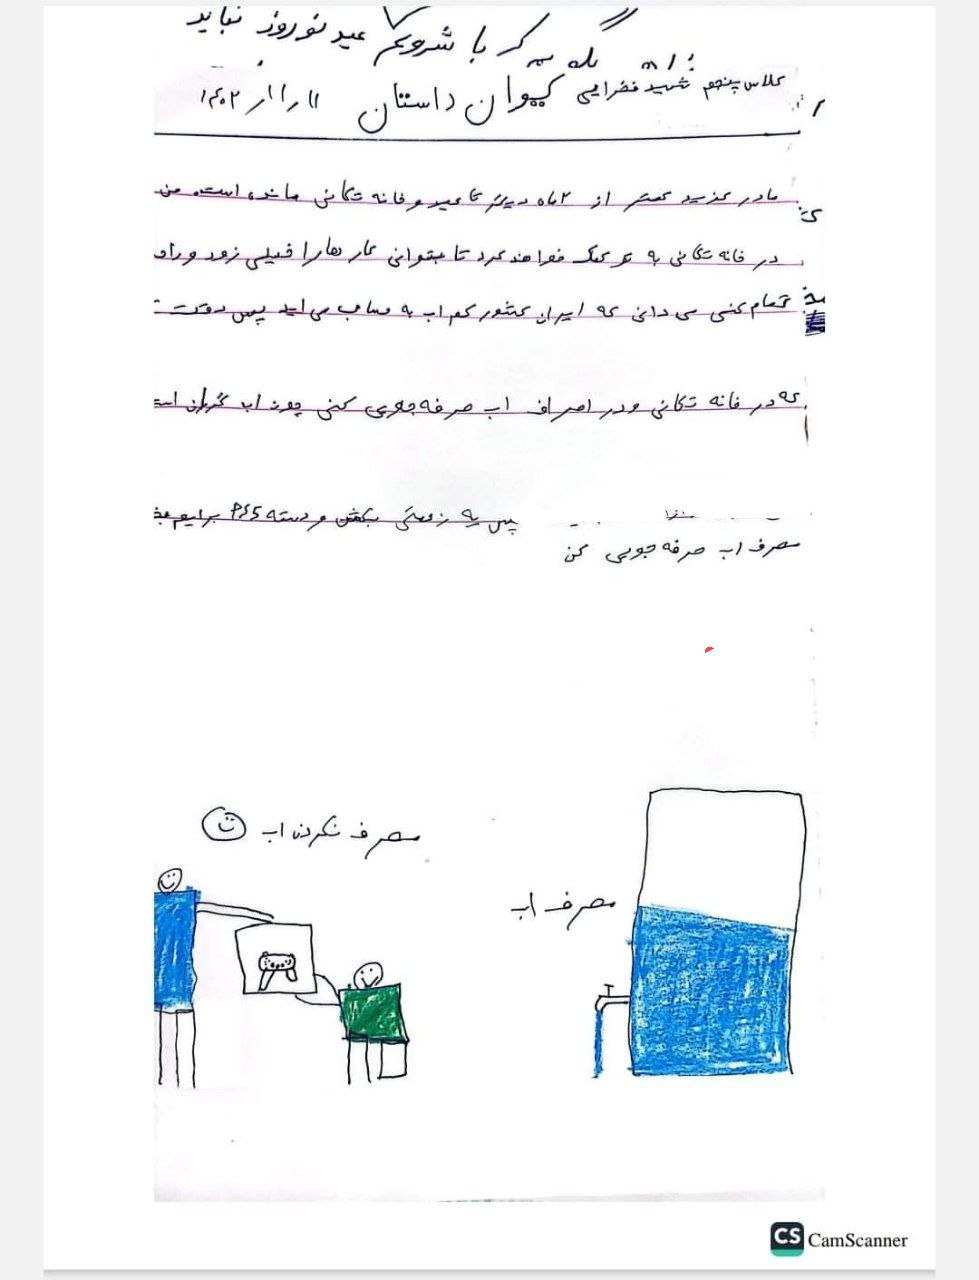 گر با شروع عید نوروز نباید
کلاس پنجم شهید فخرایی کیوان داستان ۱۴۰۲/۱۱/۱۱
مادر عزیزم کمتر از ۲ ماه دیگر تا عید و خانه تکانی مانده است. من
در خانه تکانی به تو کمک خواهم کرد تا بتوانی کار ها را خیلی زود و
تمام کنی می دانی که ایران کشور کم اب به حساب می اید پس دقت
که در خانه تکانی و در اصراف اب صرفه جویی کنی چون اب گران است
پس یه زحمتی بکش و دسته PS5 برایم
مصرف اب صرفه جویی کن
مصرف نکردن اب
مصرف اب
CS CamScanner